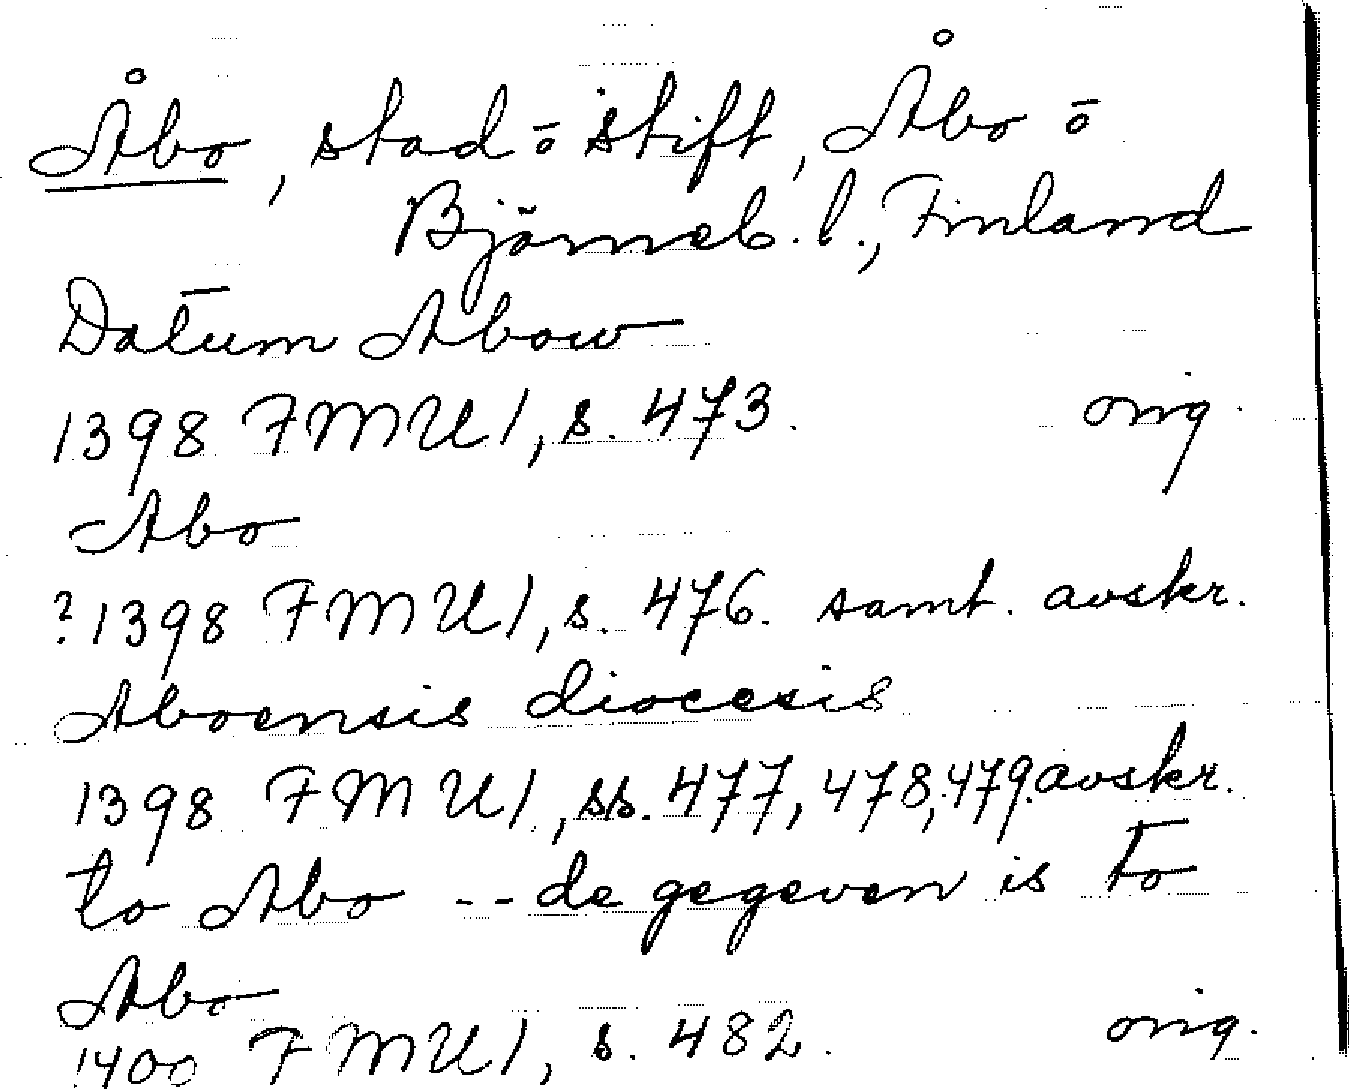 Åbo, stad ō stift, Åbo ō
Björneb. l., Finland
Datum Abow
1398 FMU 1, s. 473. orig.
Abo
? 1398 FMU 1, s. 476. samt. avskr.
Aboensis diocesis
1398 FMU 1, ss. 477, 478, 479. avskr.
to Abo -- de gegeven is to
Abo
1400 FMU 1, s. 482. orig.